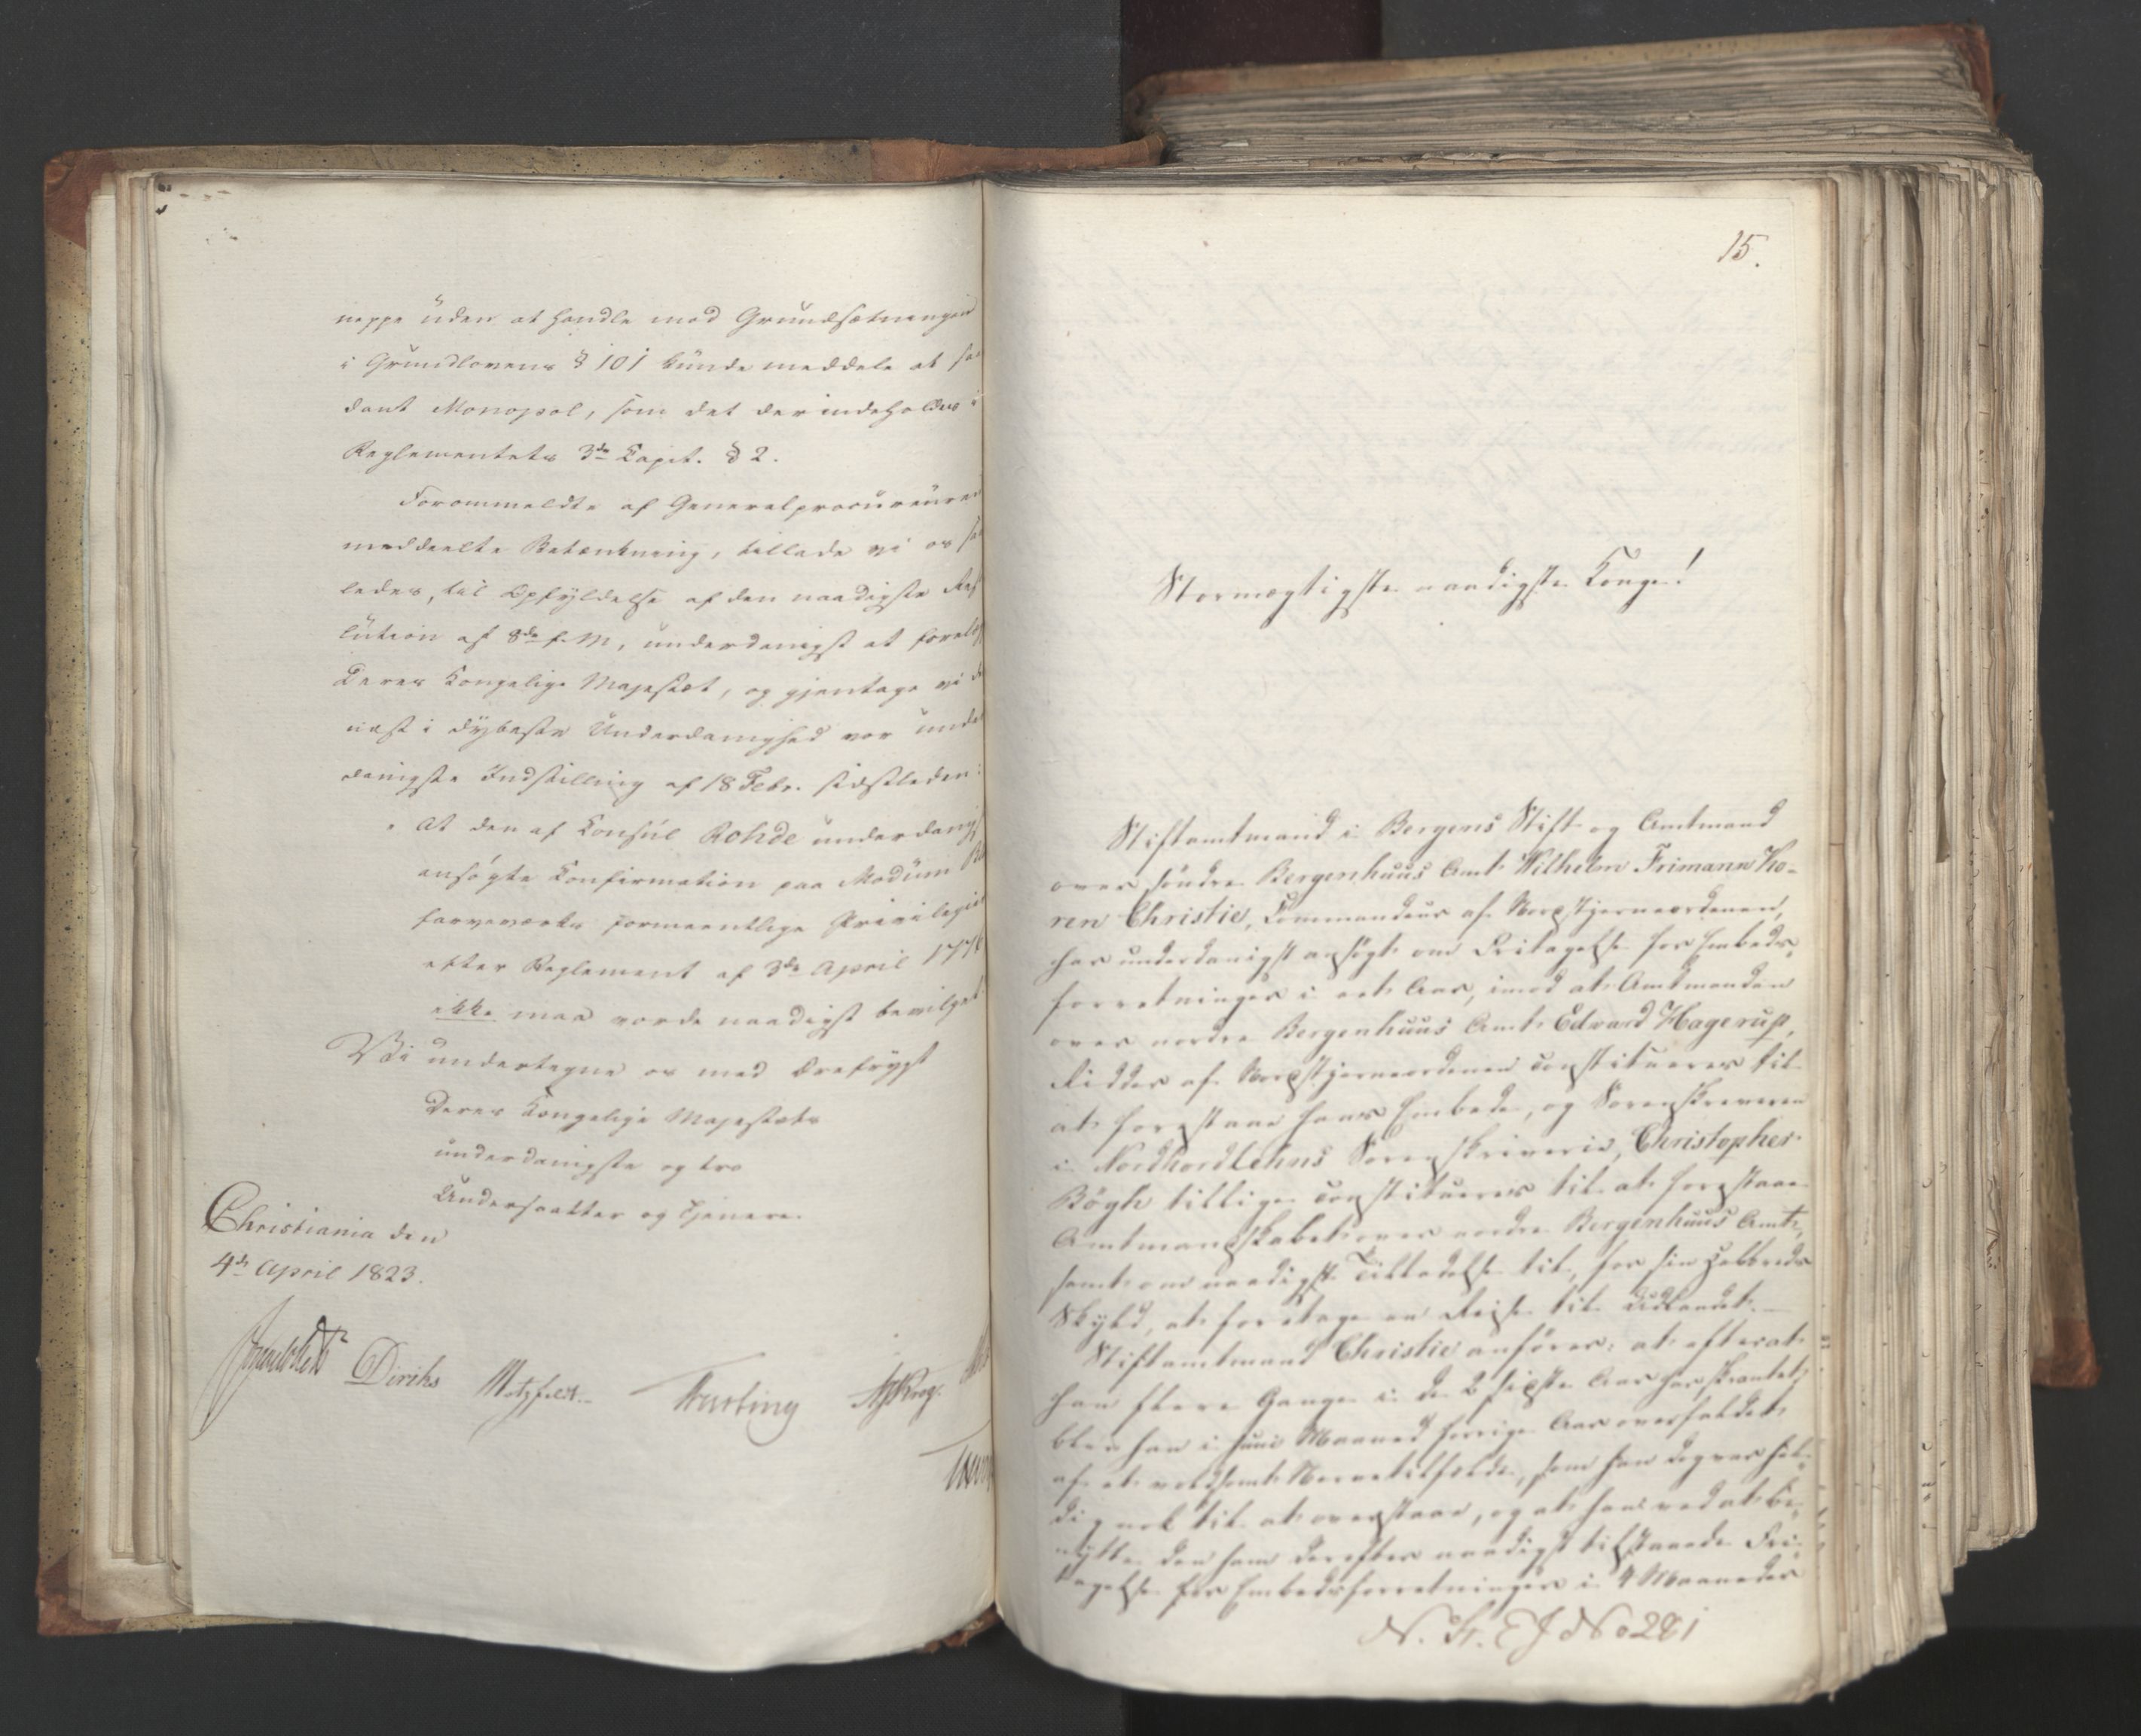 neppe uden at handle mod Grundsætningen
i Grundlovens § 101 kunde meddele et saa
dant Monopol, som det der indeholdes i
Reglementets 3de Capit. § 2.
Forommeldte af Generalprocureuren
meddeelte Betænkning, tillade vi os saa
ledes, til Opfyldelse af den naadigste Reso
lution af 8de f. M, underdanigst at forelæg
Deres Kongelige Majestæt, og gjentage vi der
næst i dybeste Underdanighed vor under
danigste Indstilling af 18 Febr. sidstleden:
" At den af Consul Rohde underdanigst
ansøgte Confirmation paa Modum Bla
farveværks formeentlige Privilegier
efter Reglement af 3de April 1776
ikke maa vorde naadigst bevilget.
Vi undertegne os med Ærefrygt
Deres Kongelige Majestæts
underdanigste og troe
Undersaatter og Tjenere.
Christiania den
4de April 1823.
Diriks Motzfeldt. Treschow Krog.
15.
Stormægtigste naadigste Konge!
Stiftamtmand i Bergens Stift og Amtmand
over søndre Bergenhuus Amt Wilhelm Frimann Ko-
ren Christie, Commandeur af Nordstjerneordenen,
har underdanigst ansøgt om Fritagelse for Embeds-
forretninger i eet Aar, imod at Amtmanden
over nordre Bergenhuus Amt Edvard Hagerup,
Ridder af Nordstjerneordenen constitueres til
at forestaae hans Embede, og Sorenskriveren
i Nordhordlehns Sorenskriverie, Christopher
Bøgh tillige constitueres til at forestaae
Amtmandskabet over nordre Bergenhuus Amt,
samt om naadigst Tilladelse til, for sin Helbreds
Skyld, at foretage en Reise til Udlandet. —
Stiftamtmand Christie anfører: at efterat
han flere Gange i de 2 sidste Aar har skrantet,
blev han i Juni Maaned forrige Aar overfaldet
af et voldsomt Nervetilfælde, som han dog var hel-
dig nok til at overstaae, og at han ved at be-
nytte den ham derefter naadigst tilstaaede Fri-
tagelse for Embedsforretninger i 4 Maaneder
N. St. E J No 281